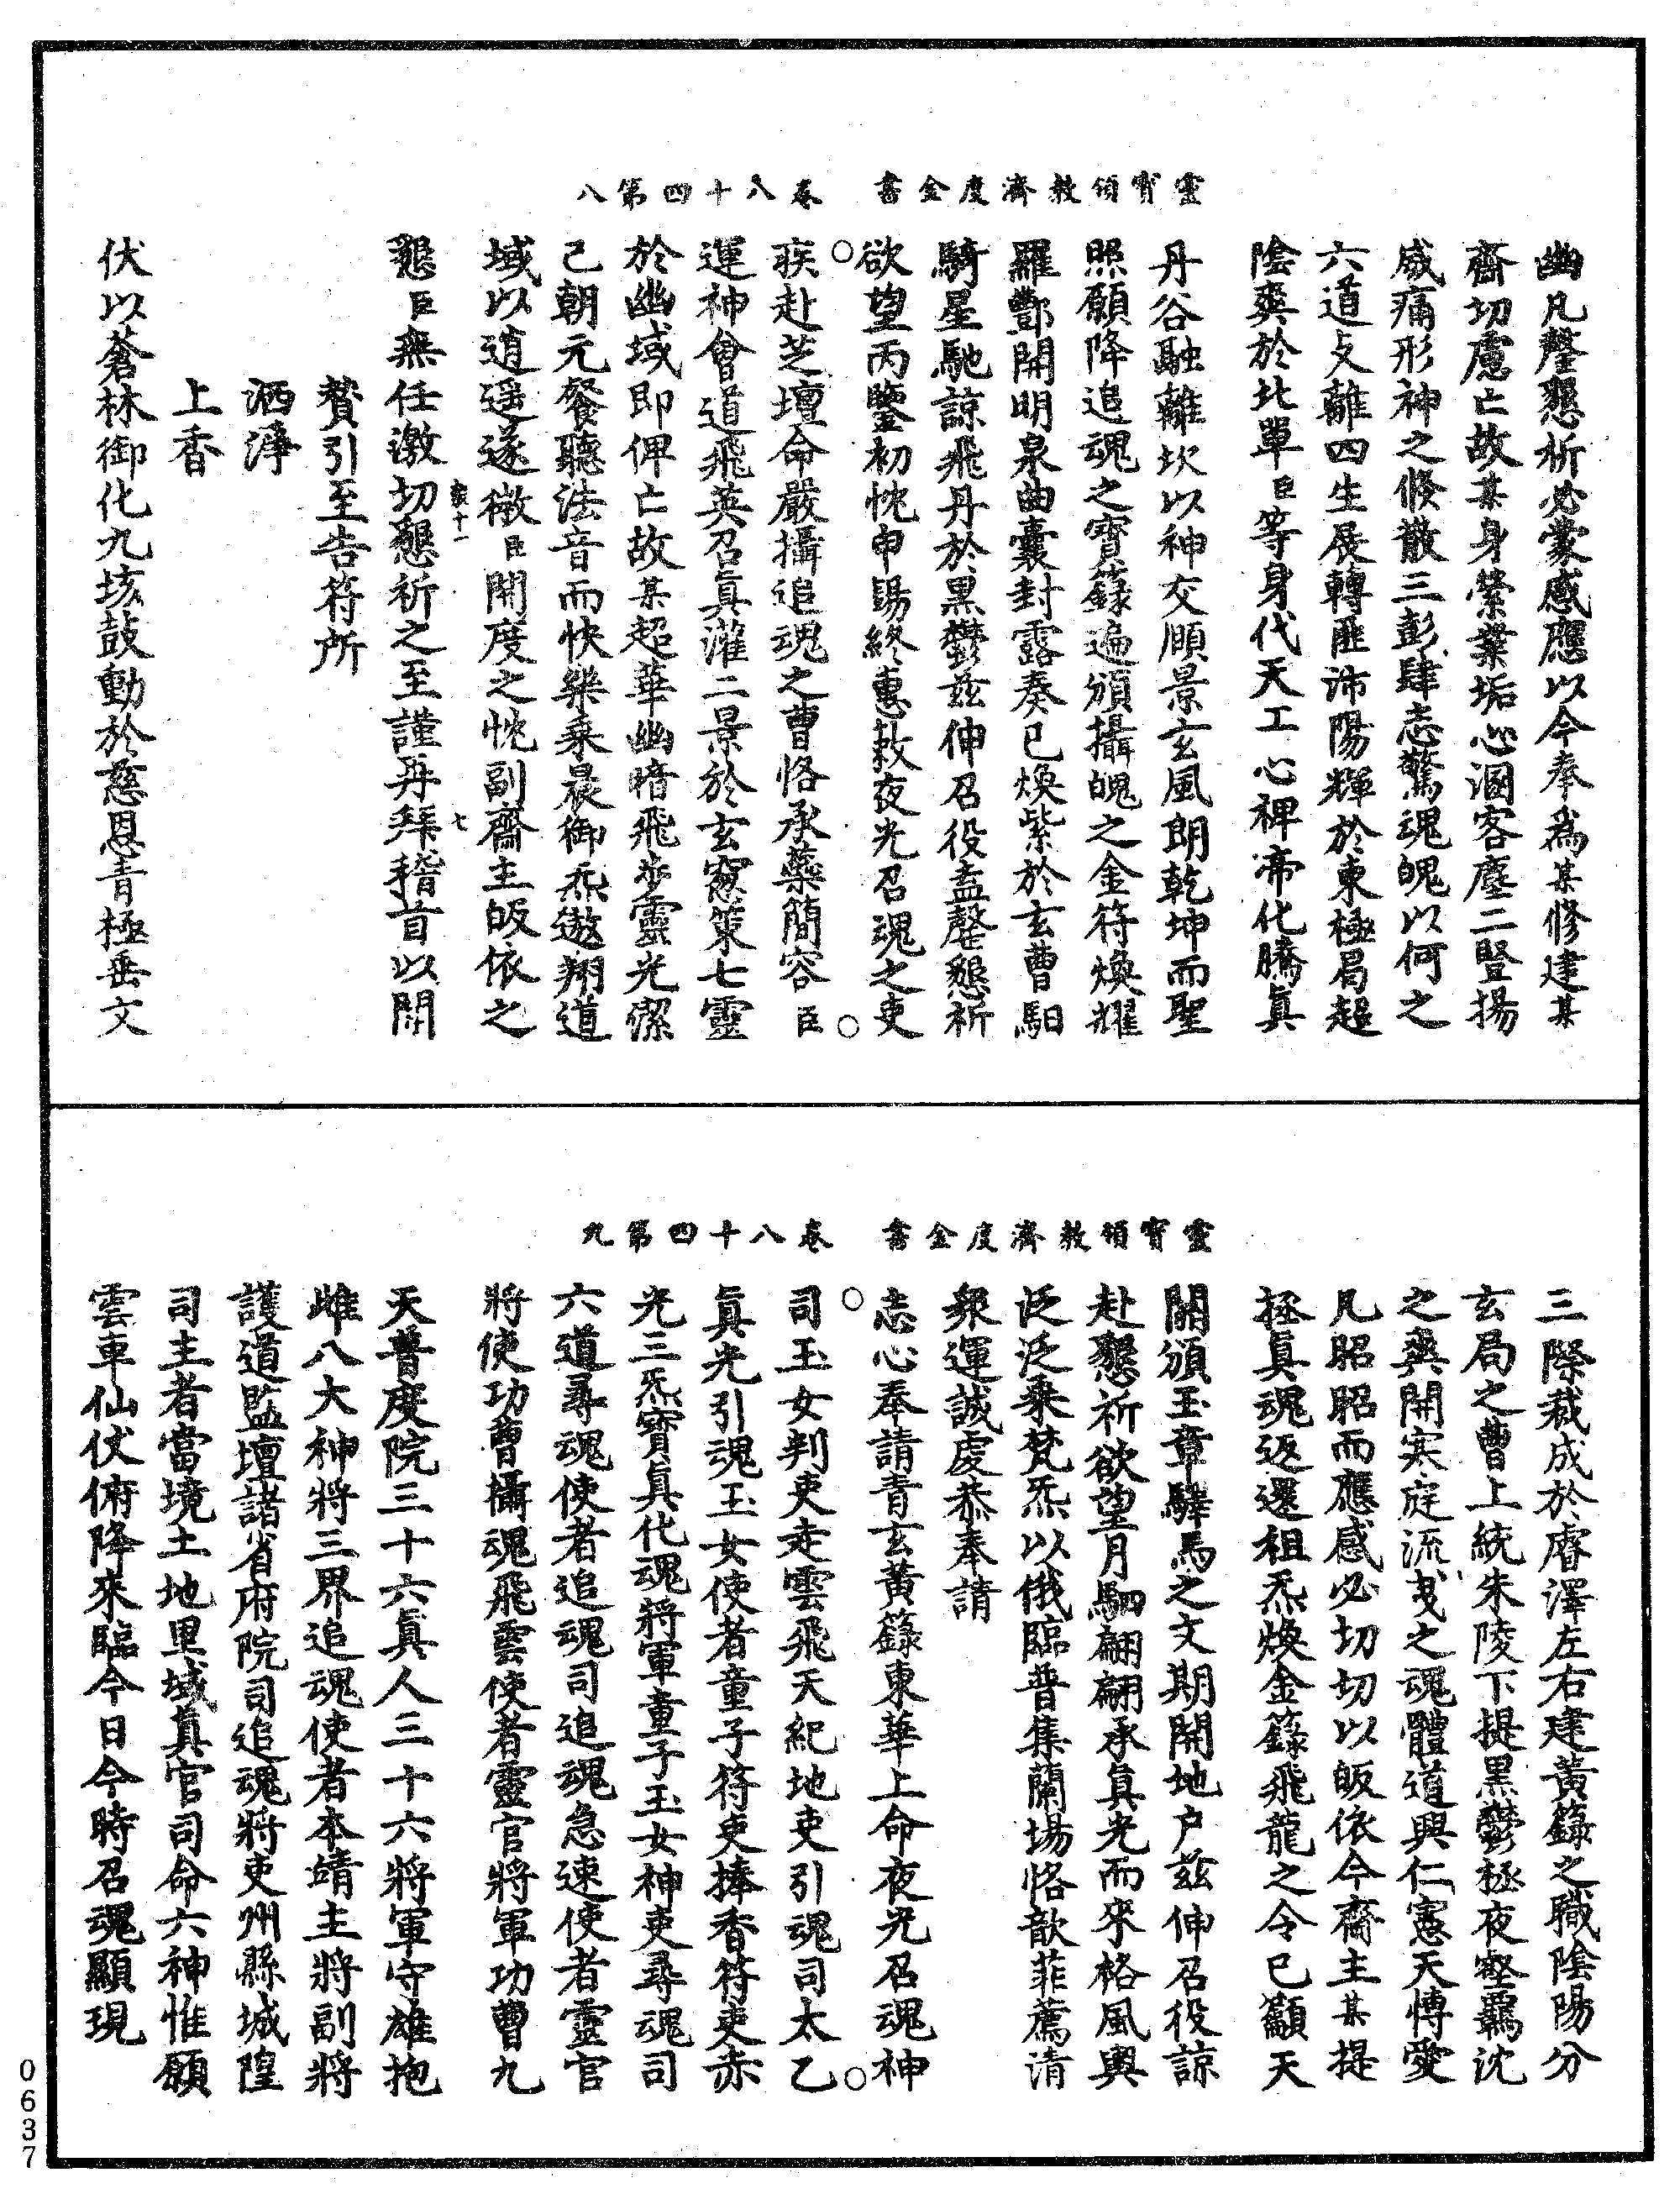 靈寶領教濟度金書 卷八十四第八
幽凡罄懇祈必蒙感應以今奉爲某修建某
齋切慮亡故某身縈業垢心溷客塵二豎揚
威痛形神之倐散三彭肆志驚魂魄以何之
六道攴離四生展轉匪沛陽輝於東極曷超
陰爽於北單臣等身代天工心裨帝化騰眞
丹谷融離坎以神交頋景玄風朗乾坤而聖
照願降追魂之寶籙遍頒攝魄之金符煥耀
羅酆開明泉曲囊封露奏已煥紫於玄曹馹
騎星馳諒飛丹於黑欝兹伸召役盍罄懇祈
欲望丙鑒初忱申錫終惠敕夜光召魂之吏
疾赴芝壇命嚴攝追魂之曹恪承蘂簡容臣
運神會道飛英召眞灌二景於玄窓策七靈
於幽域即俾亡故某超華幽暗飛步靈光潔
己朝元餐聽法音而快樂乗晨御炁遨翔道
域以逍遥遂徹臣開度之忱副齋主皈依之
懇臣無任激切懇祈之至謹再拜稽首以聞
贊引至告符所
洒淨
上香
伏以蒼林御化九垓鼓動於慈恩青極垂文
靈寶領教濟度金書 卷八十四第九
三際裁成於睿澤左右建黃籙之職陰陽分
玄局之曹上統朱陵下提黑欝拯夜壑羈沈
之爽開寒庭流曵之魂體道興仁憲天愽愛
凡昭昭而應感必切切以皈依今齋主某提
拯眞魂返還祖炁煥金籙飛龍之令已籲天
關頒玉章驛馬之文期開地户兹伸召役諒
赴懇祈欲望月駟翩翩承眞光而來格風輿
泛泛乗梵炁以俄臨普集蘭場恪歆菲薦清
衆運誠虔恭奉請
志心奉請青玄黃籙東華上命夜光召魂神
司玉女判吏走雲飛天紀地吏引魂司太乙
眞光引魂玉女使者童子符吏捧香符吏赤
光三炁寶眞化魂將軍童子玉女神吏尋魂司
六道尋魂使者追魂司追魂急速使者靈官
將使功曹攝魂飛雲使者靈官將軍功曹九
天普度院三十六眞人三十六將軍守雄抱
雌八大神將三界追魂使者本靖主將副將
護道監壇諸省府院司追魂將吏州縣城隍
司主者當境土地里域眞官司命六神惟願
雲車仙仗俯降來臨今日今時召魂顯現
0637